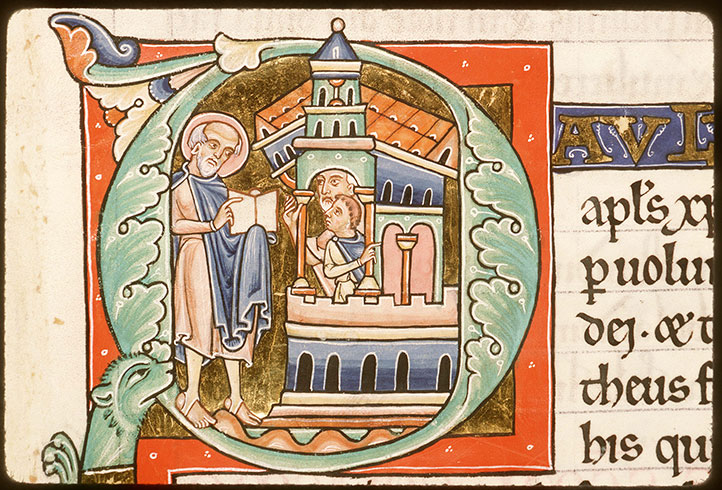 PAVL
apl's xp
p uolu
dej. & t
theus f
his qui